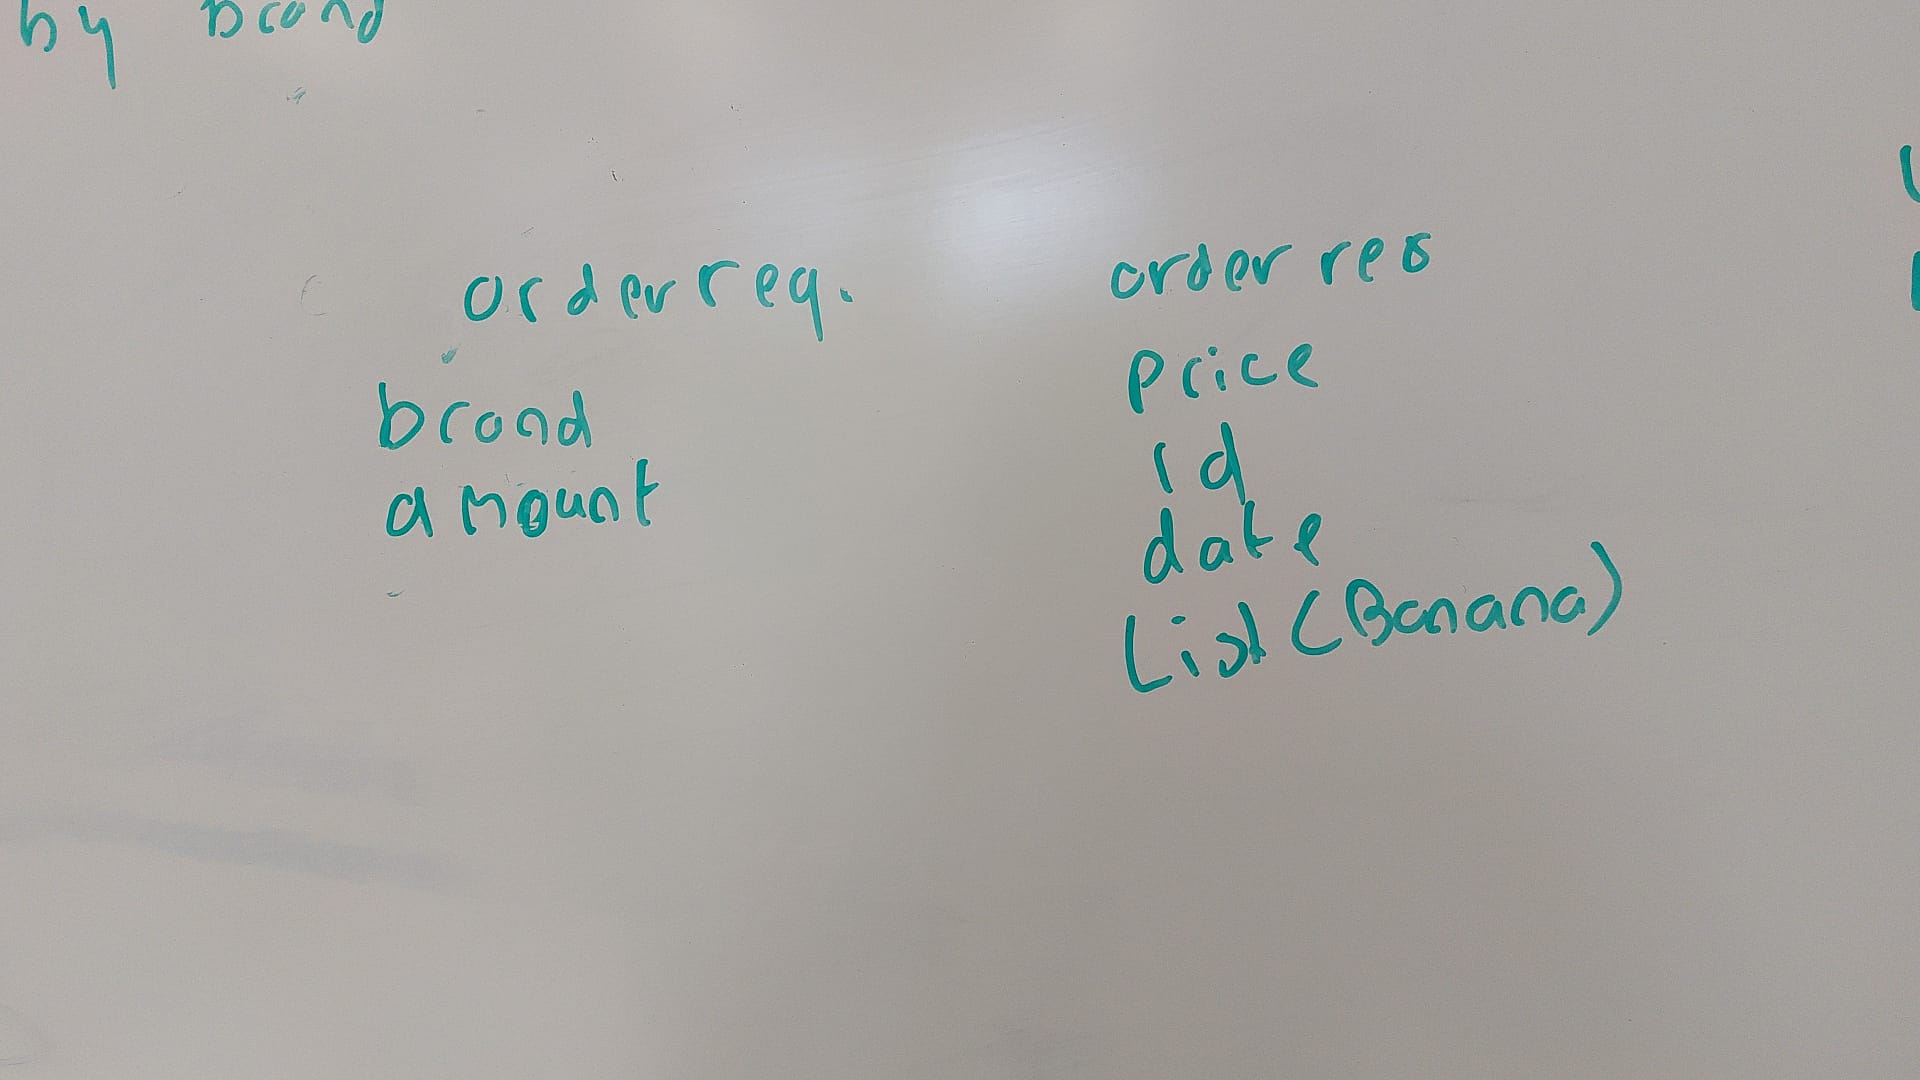 by Brand
order req.
brand
amount
order res
price
id
date
List (Banana)